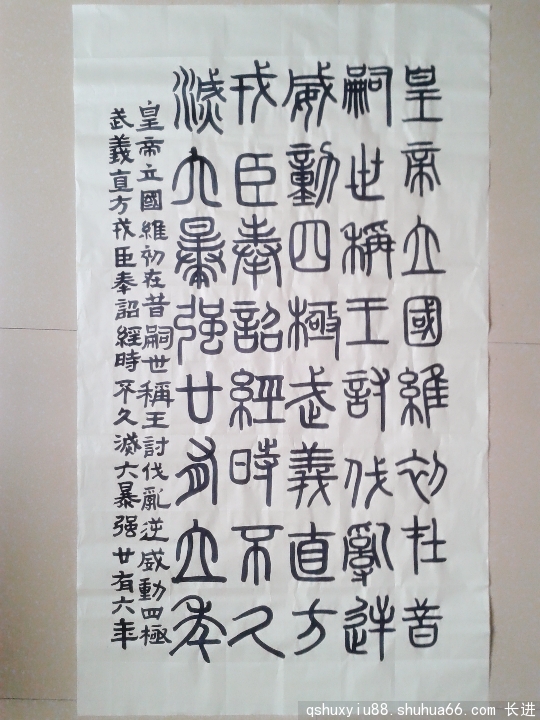 皇帝立國維初在昔
嗣世稱王討伐亂逆
威動四極武義直方
戎臣奉詔經時不久
滅六暴强廿有六年
皇帝立國維初在昔嗣世稱王討伐亂逆威動四極
武義直方戎臣奉詔經時不久滅六暴强廿有六年
qshuxyiu88.shuhua66.com 长进